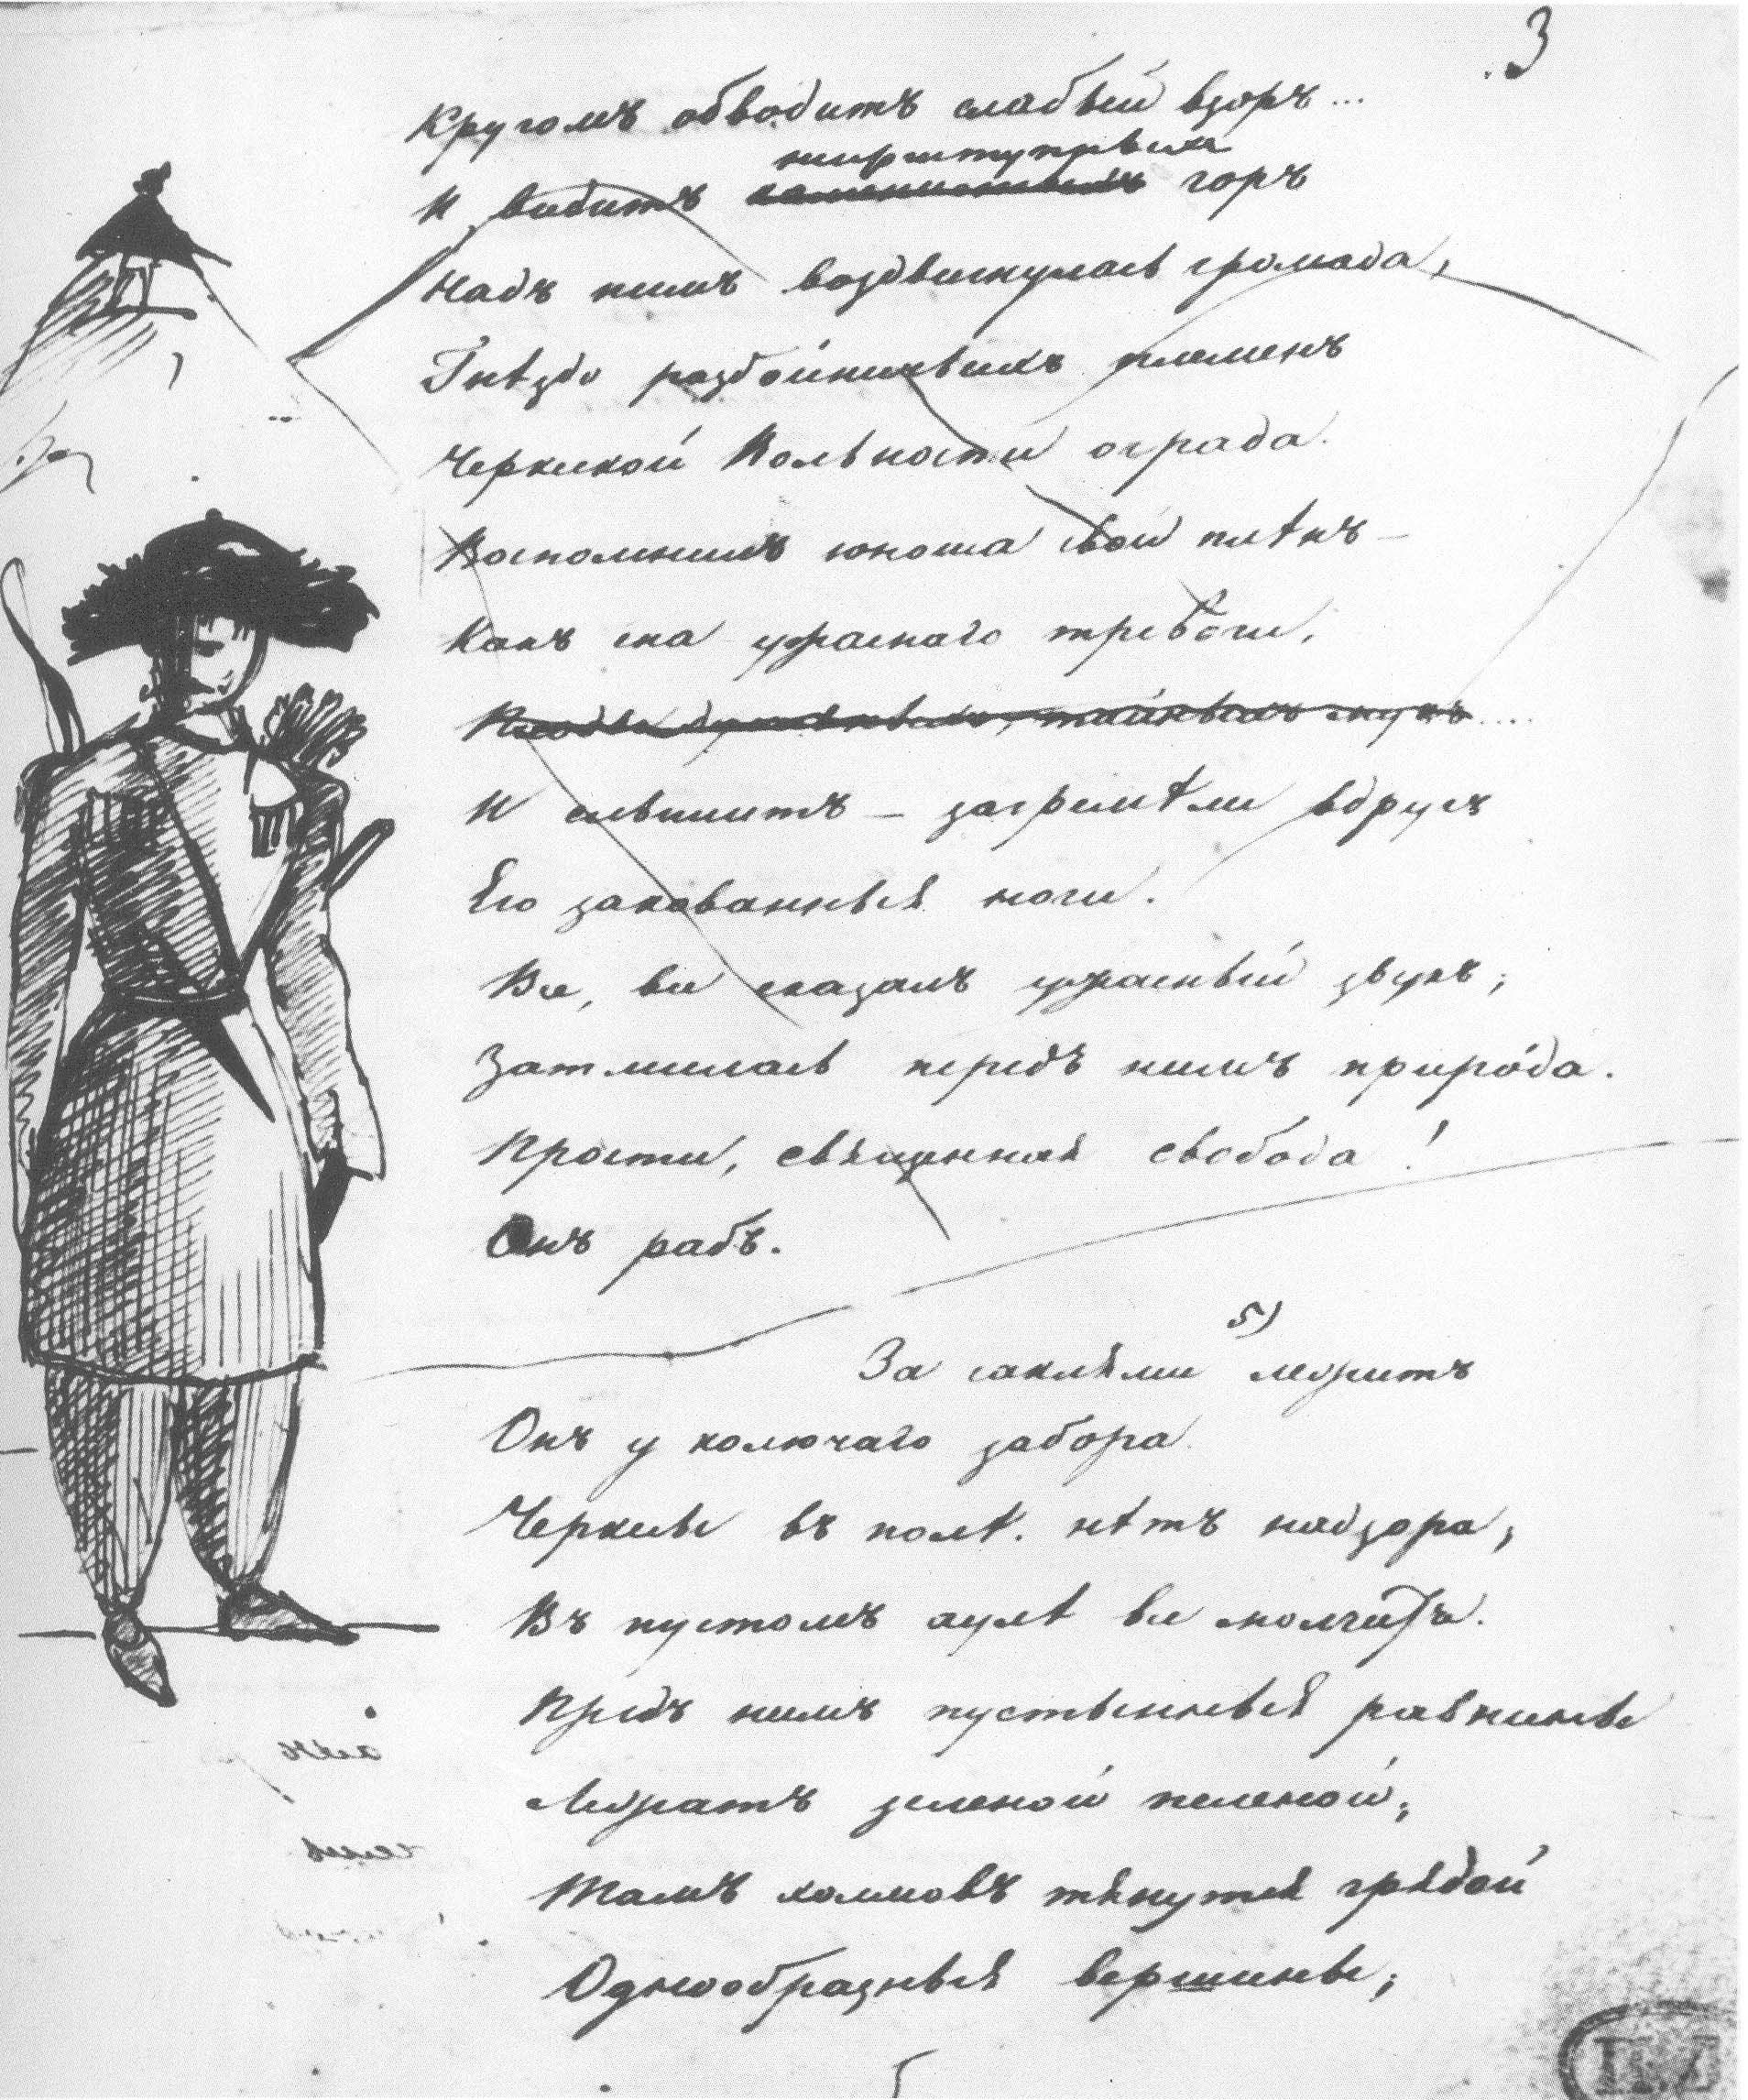 3
Кругомъ обводитъ слабый взоръ...
неприступныхъ
И видитъ горъ
Надъ нимъ воздвигнулась громада,
Гнѣздо разбойничьихъ племенъ
Черкеской Вольности ограда.
Воспомнилъ юноша свой плѣнъ —
Какъ сна ужаснаго тревоги,
И слышитъ — загремѣли вдругъ
Его закованныя ноги.
Все, все сказалъ ужасный звукъ;
Затмилась передъ нимъ природа.
Прости, священная свобода!
Онъ рабъ.
5)
За саклями лежитъ
Онъ у колючаго забора.
Черкесы въ полѣ. нѣтъ надзора,
Въ пустомъ аулѣ все молчитъ.
Предъ нимъ пустынныя равнины
Лежатъ зеленой пеленой;
Тамъ холмовъ тянутся грядой
Однообразныя вершины;